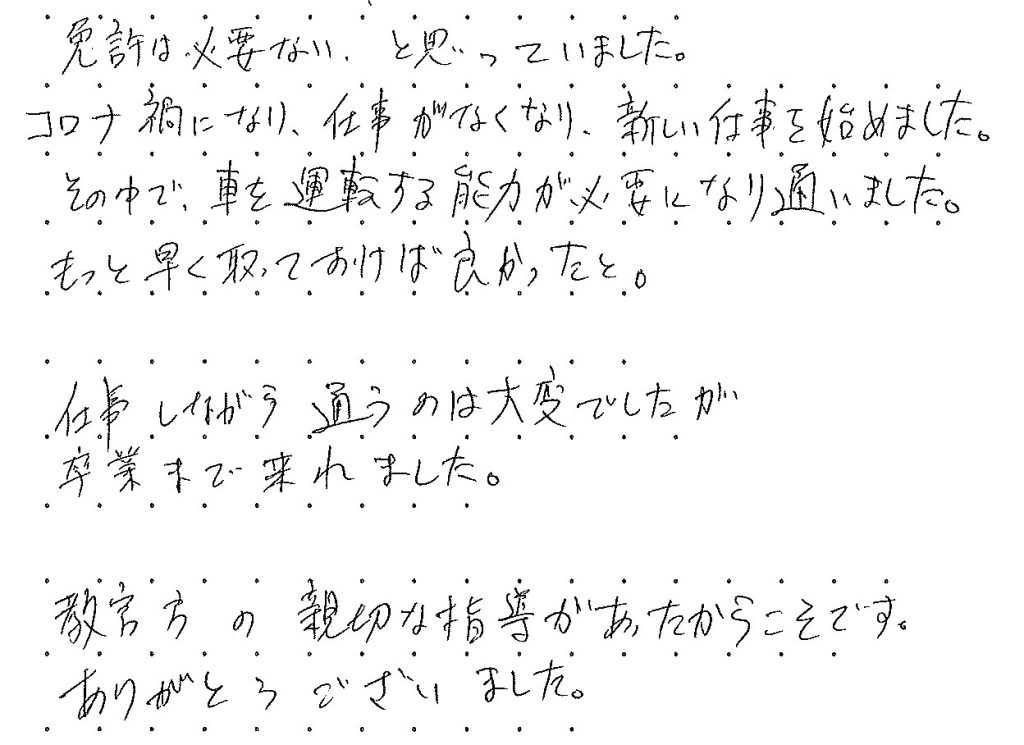 免許は必要ない、と思っていました。
コロナ禍になり、仕事がなくなり、新しい仕事を始めました。
その中で、車を運転する能力が必要になり通いました。
もっと早く取っておけば良かったと。
仕事しながら通うのは大変でしたが
卒業まで来れました。
教官方の親切な指導があったからこそです。
ありがとうございました。